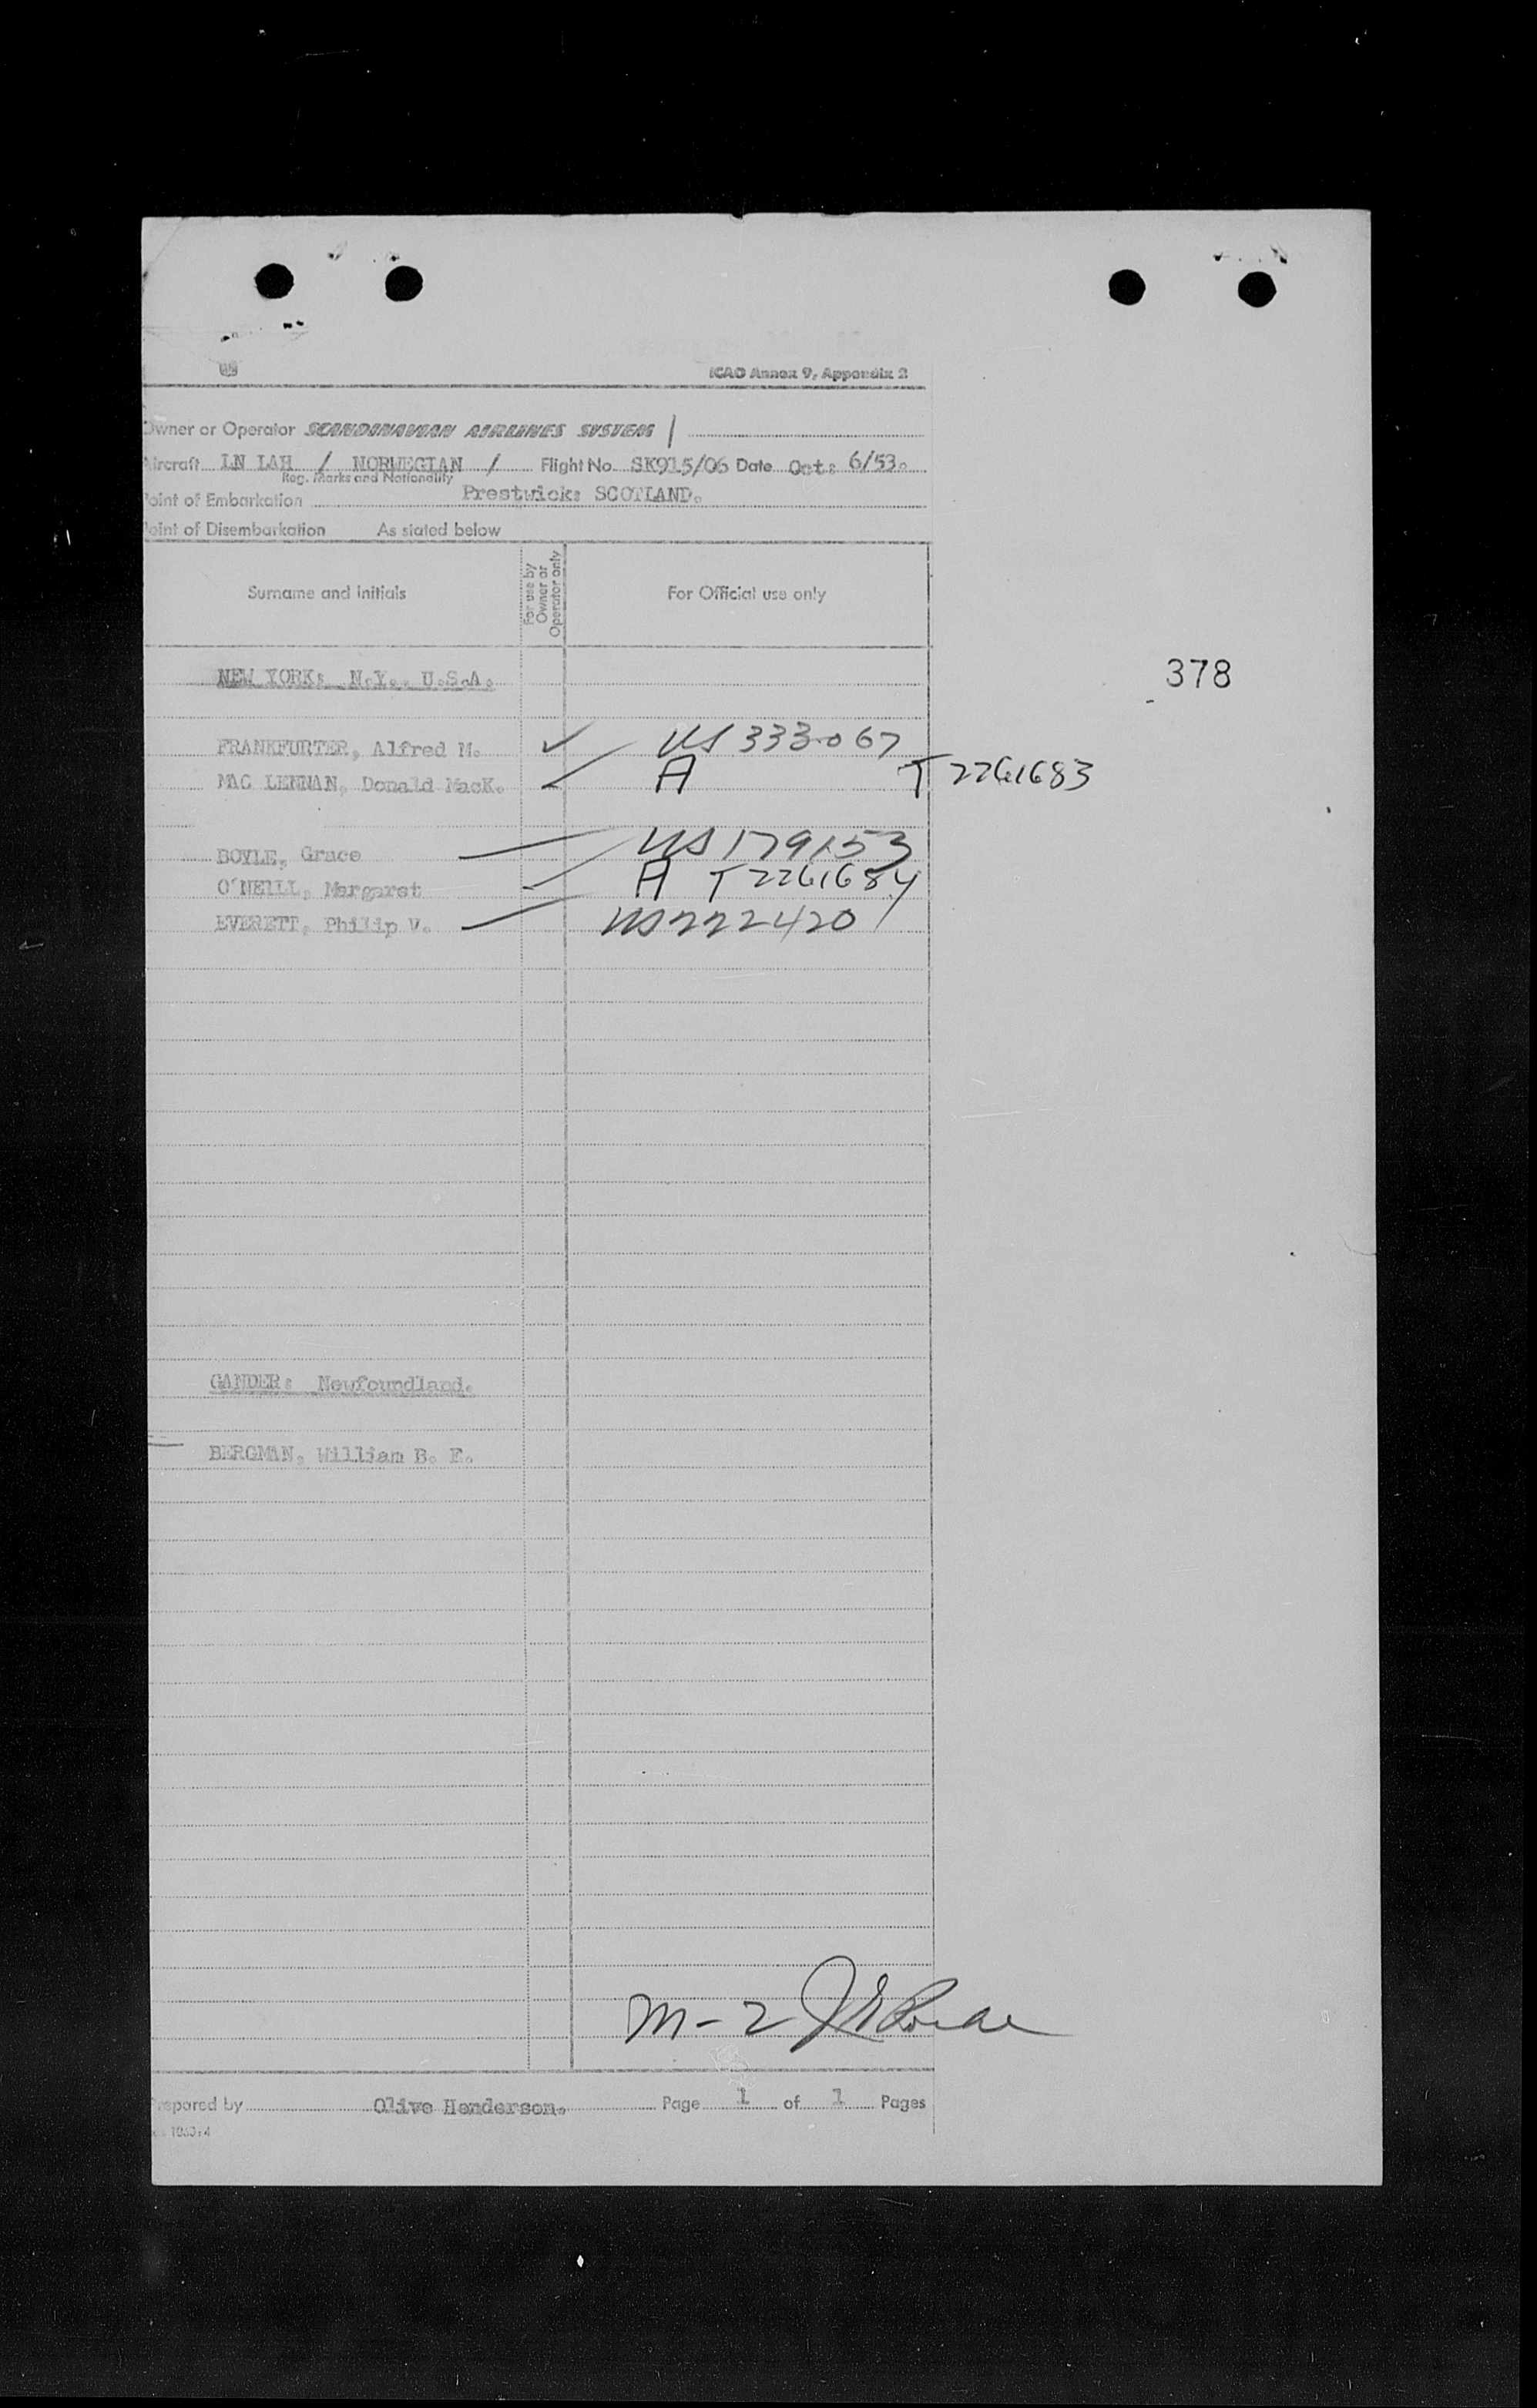 ICAO Annex 9, Appendix 2
Owner or Operator SCANDINAVIAN AIRLINES SYSTEM /
Aircraft LN LAH / NORWEGIAN / Flight No. SK915/06 Date Oct: 6/53.
Reg. Marks and Nationality
Point of Embarkation Prestwick: SCOTLAND.
Point of Disembarkation As stated below
Surname and initials For use by Owner or Operator only For Official use only
NEW YORK: N.Y. U.S.A.
378
FRANKFURTER, Alfred M. ✓ US 333067
MAC LENNAN, Donald MacK. ✓ A T2261683
BOYLE, Grace US 179153
O'NEILL, Margaret ✓ A T2261684
EVERETT, Philip V. US 222420
GANDER: Newfoundland.
BERGMAN, William B. E.
M-2
Prepared by Olive Henderson. Page 1 of 1 Pages